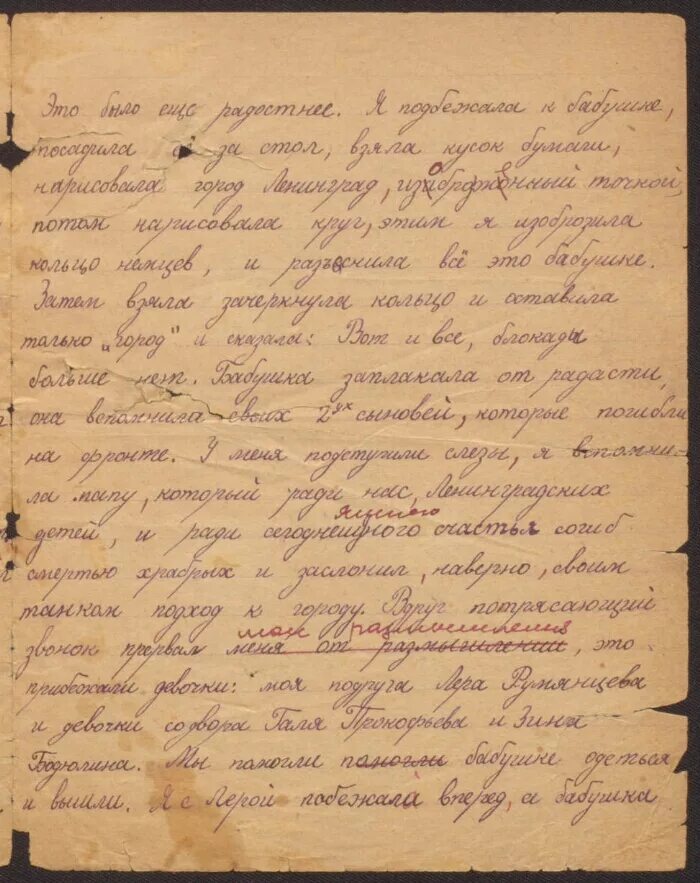 Это было еще радостнее. Я подбежала к бабушке,
посадила её за стол, взяла кусок бумаги,
нарисовала город Ленинград, изображенный точкой,
потом нарисовала круг, этим я изоброзила
кольцо немцев, и разъяснила всё это бабушке.
Затем взяла зачеркнула кольцо и оставила
только „город" и сказала: Вот и все, блокады
больше нет. Бабушка заплакала от радасти,
она вспомнила своих 2ух сыновей, которые погибли
на фронте. У меня подступили слезы, я вспомни-
ла папу, который ради нас, Ленинградских
детей, и ради сегодняшнего счастья согиб
смертью храбрых и заслонил, наверно, своим
танком подход к городу. Вдруг потрясающий
мои размышления
звонок прервал меня от размышлений, это
прибежали девочки: моя подруга Лера Румянцева
и девочки со двора Галя Прокофьева и Зина
Бодюлина. Мы помогли помогли бабушке одеться
и вышли. Я с Лерой побежала вперед, а бабушка